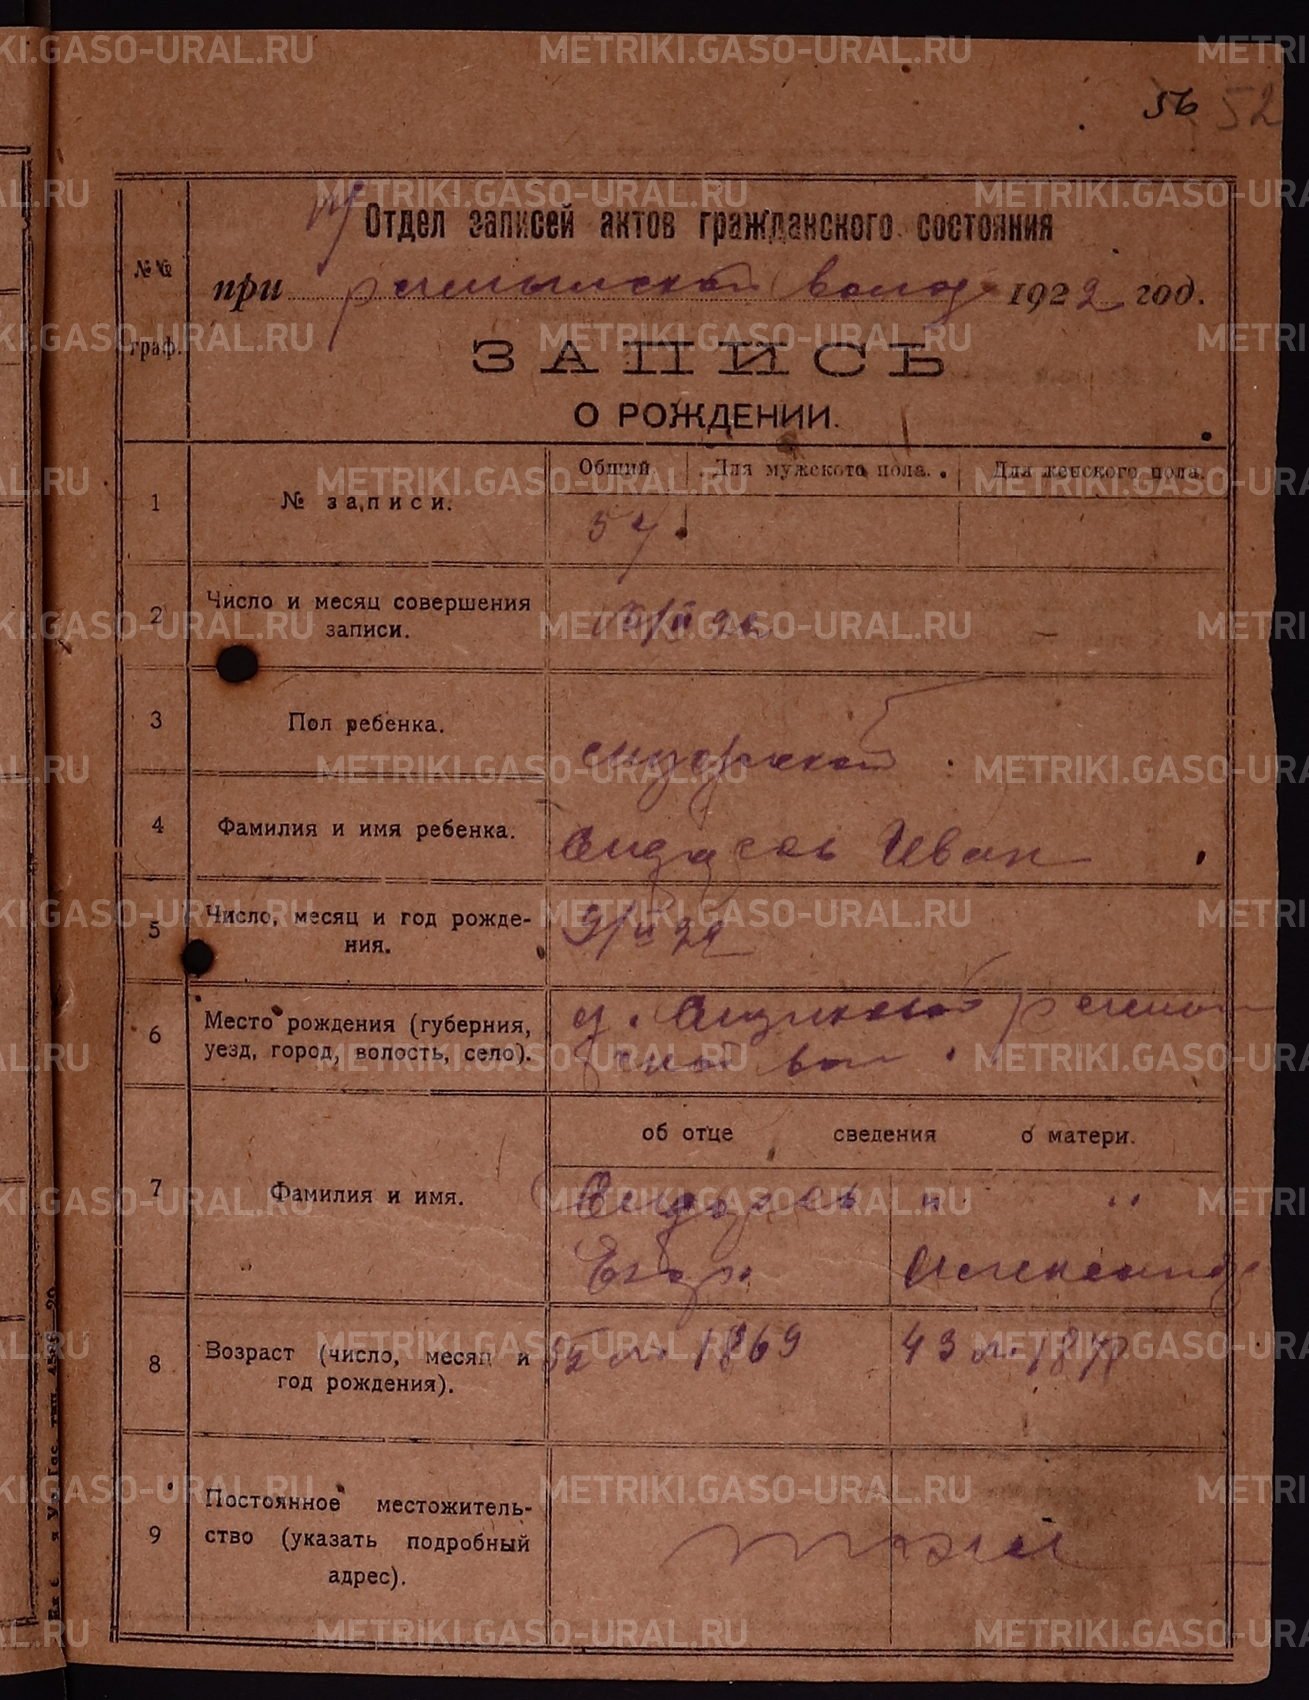 56 52
Отдел записей актов гражданского состояния
№№ граф.
при волос 1922 год.
ЗАПИСЬ
О РОЖДЕНИИ.
Общий Для мужского пола. Для женского пола.
1 № записи.
57
2 Число и месяц совершения
записи.
3 Пол ребенка.
мужской
4 Фамилия и имя ребенка.
Иван
5 Число, месяц и год рожде-
ния.
9/II 22
6 Место рождения (губерния,
уезд, город, волость, село).
д.
ской вол.
об отце сведения о матери.
7 Фамилия и имя.
Сидоров " "
Егор
8 Возраст (число, месяц и
год рождения).
52 л. 1869 43 л. 1878
9 Постоянное местожитель-
ство (указать подробный
адрес).
тоже
METRIKI.GASO-URAL.RU